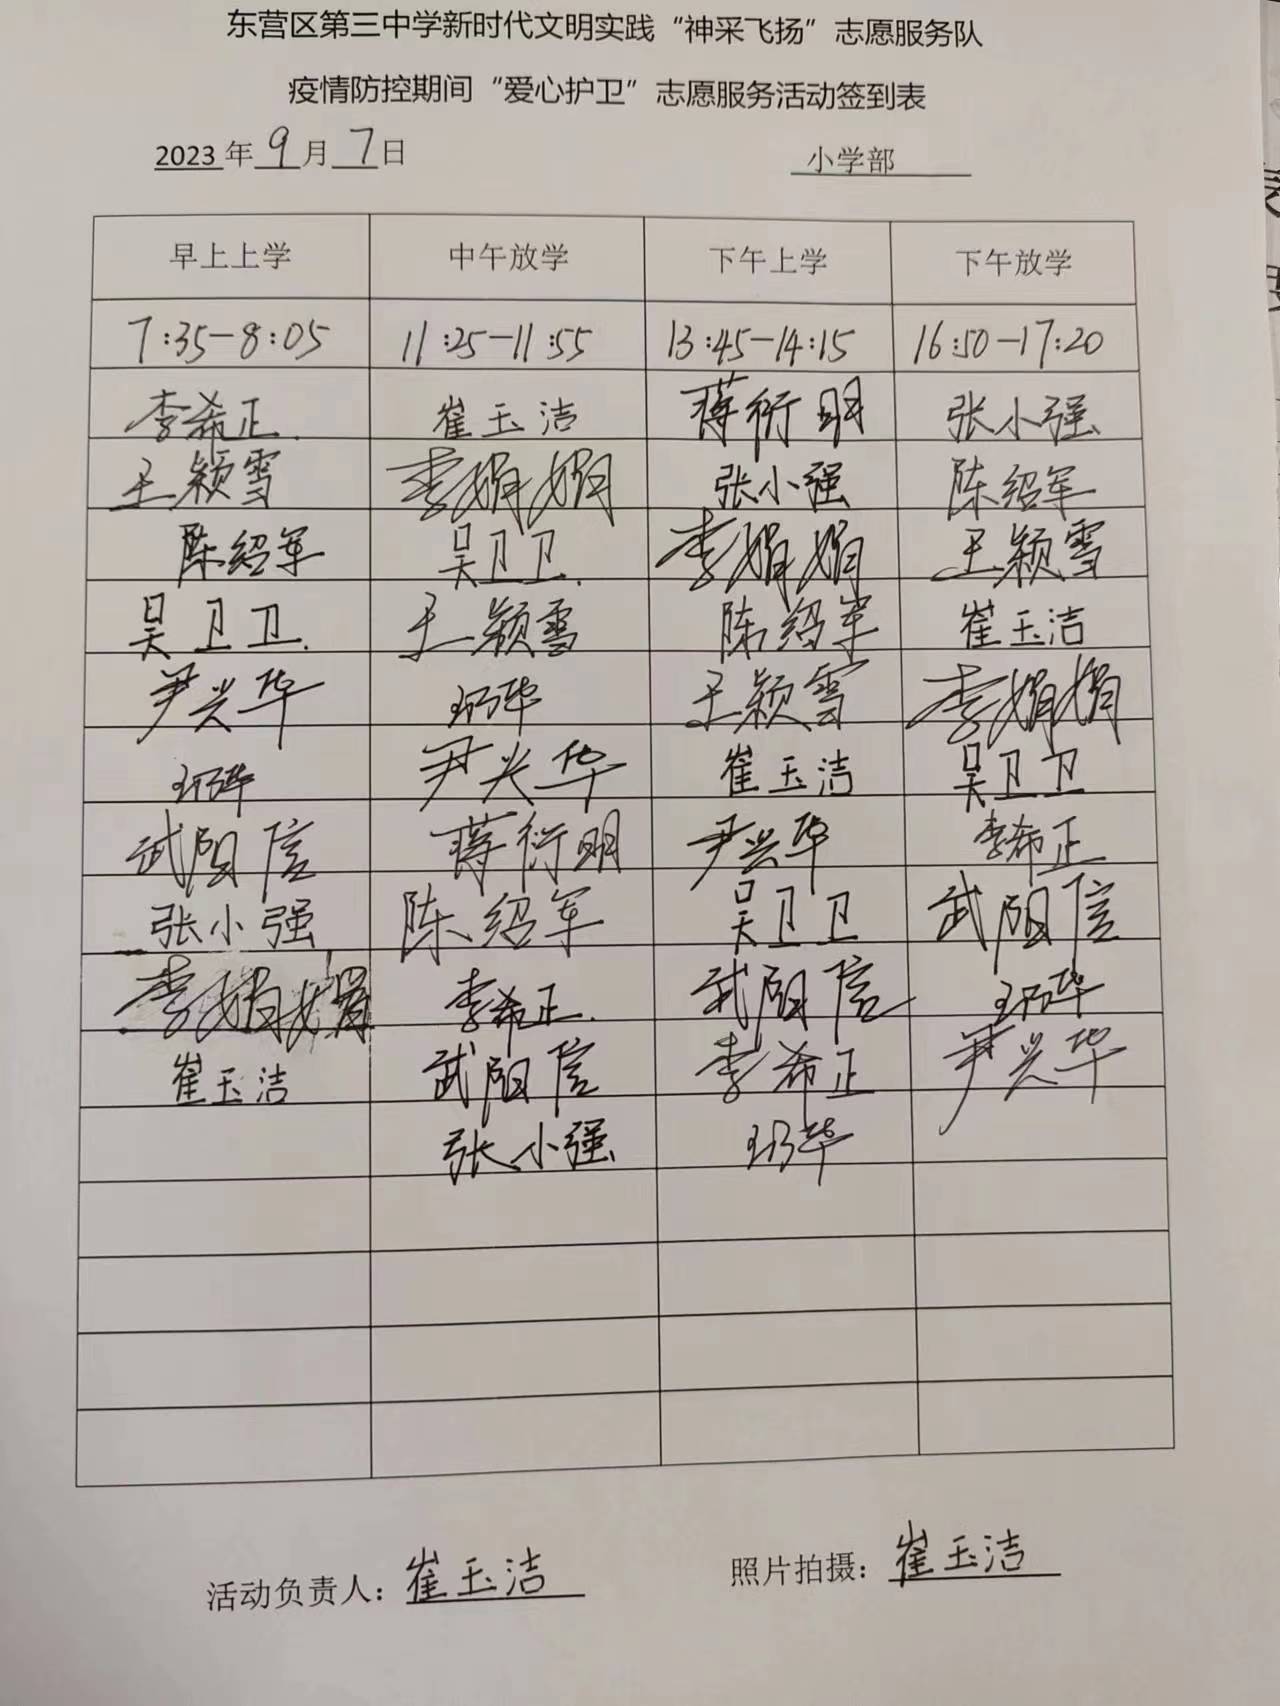 东营区第三中学新时代文明实践“神采飞扬”志愿服务队
疫情防控期间“爱心护卫”志愿服务活动签到表
2023年9月7日 小学部
早上上学 中午放学 下午上学 下午放学
7:35-8:05 11:25-11:55 13:45-14:15 16:50-17:20
李希正 崔玉洁 蒋衍明 张小强
王颖雪 李娟娟 张小强 陈绍军
陈绍军 吴卫卫 李娟娟 王颖雪
吴卫卫 王颖雪 陈绍军 崔玉洁
尹兴华 王颖雪 李娟娟
尹兴华 崔玉洁 吴卫卫
武阳信 蒋衍明 尹兴华 李希正
张小强 陈绍军 吴卫卫 武阳信
李娟娟 李希正 武阳信
崔玉洁 武阳信 李希正 尹兴华
张小强
活动负责人：崔玉洁 照片拍摄：崔玉洁